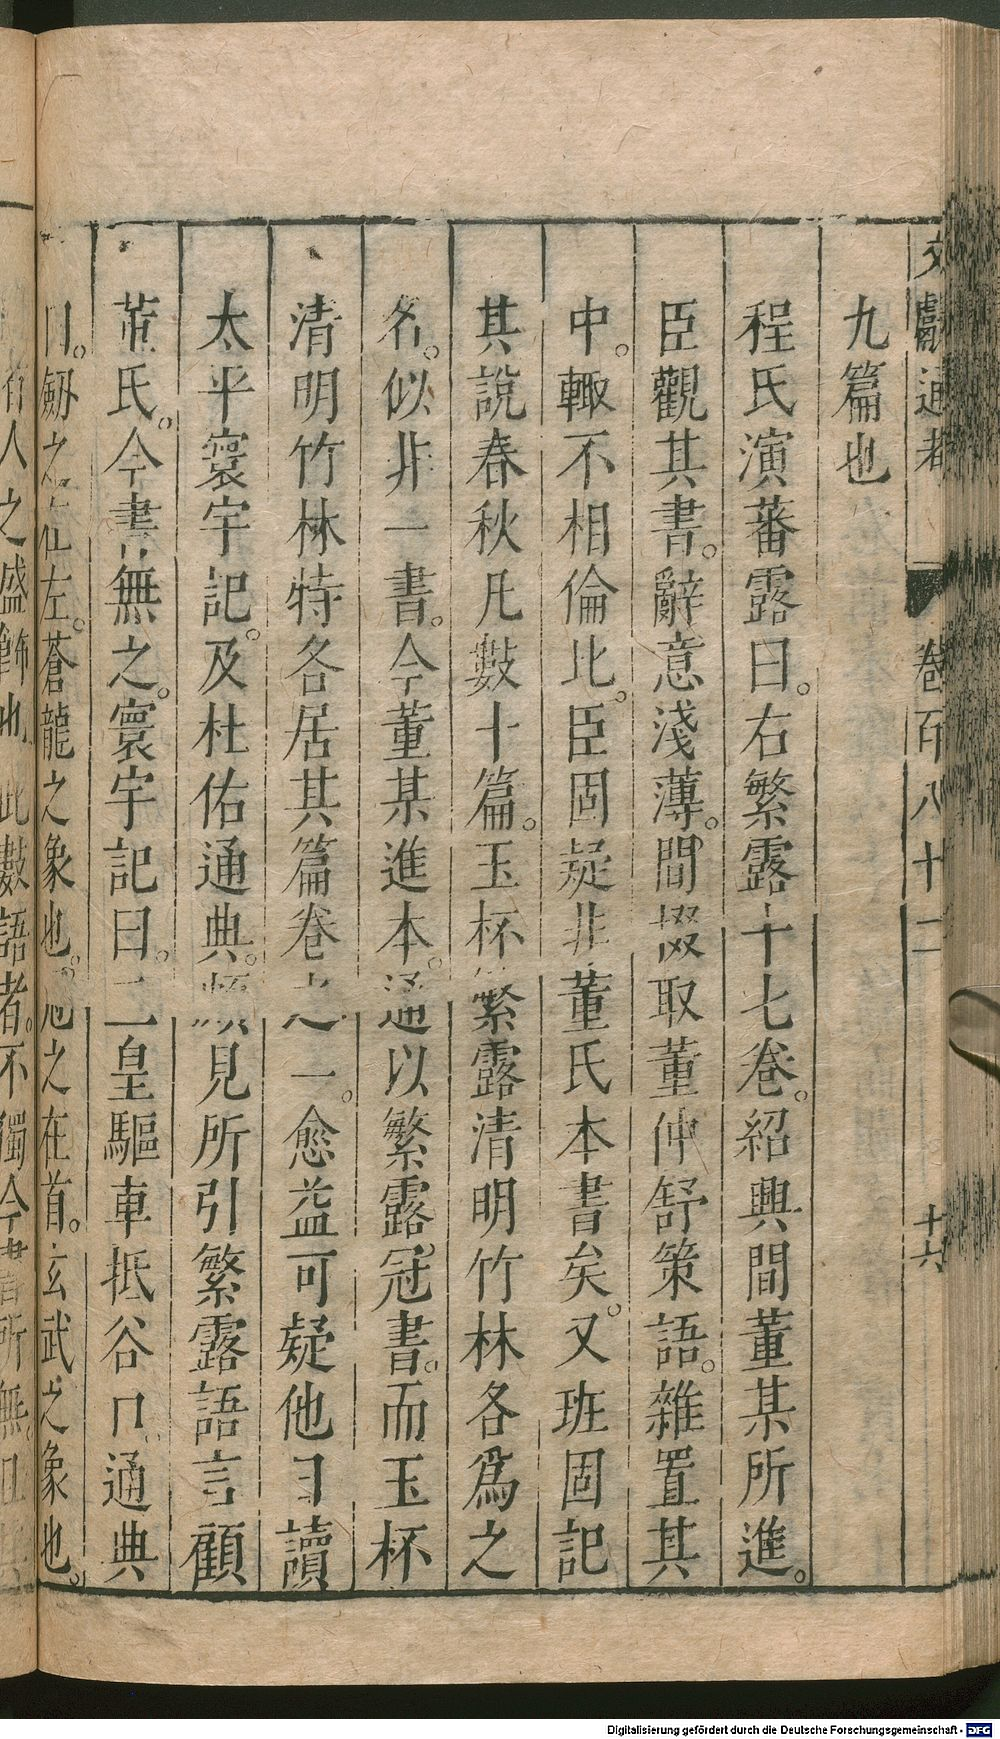 文獻通考 卷百八十二 十六
九篇也
程氏演蕃露曰。右繁露十七卷。紹興間董某所進。
臣觀其書。辭意淺薄。間掇取董仲舒策語。雜置其
中。輙不相倫比。臣固疑非董氏本書矣。又班固記
其說春秋凡數十篇。玉杯繁露清明竹林各爲之
名。似非一書。今董某進本。通以繁露冠書。而玉杯
清明竹林特各居其篇卷之一。愈益可疑他日讀
太平寰宇記。及杜佑通典。頗見所引繁露語言顧
董氏。今書無之。寰宇記曰。三皇驅車抵谷口。通典
曰。劒之在左。蒼龍之象也。之在首。玄武之象也。
人之盛飾也此數語者。不獨今書所無。且
Digitalisierung gefördert durch die Deutsche Forschungsgemeinschaft - DFG